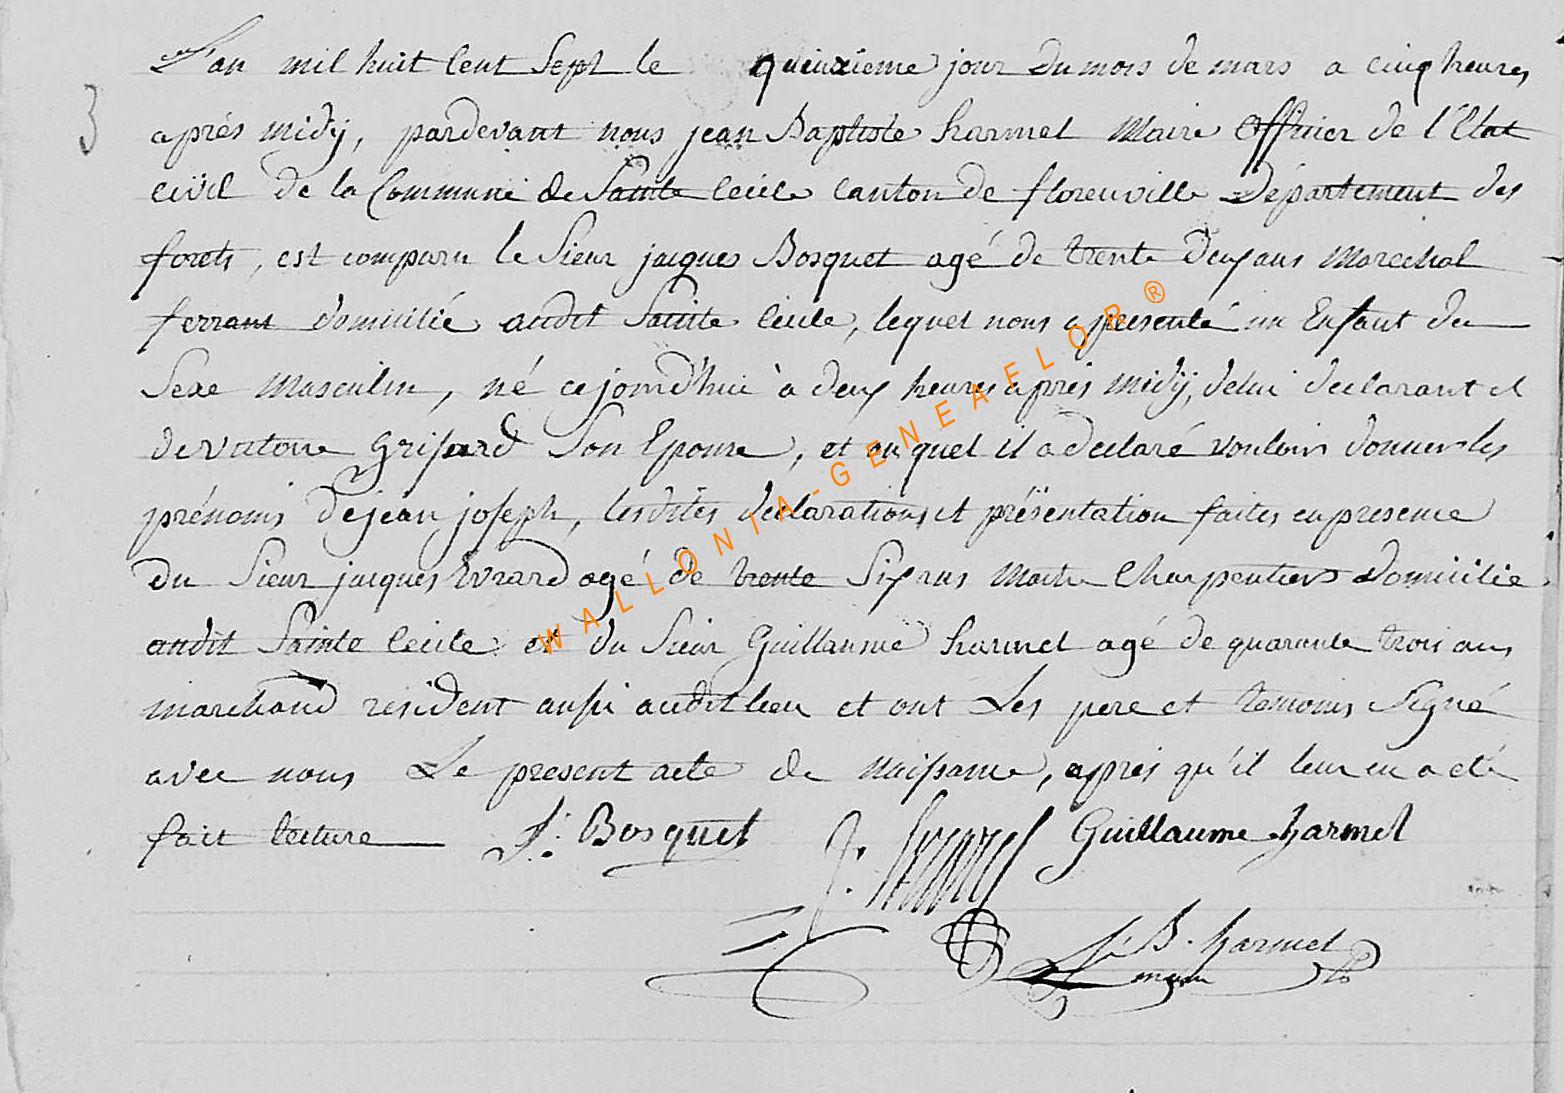 3
L'an mil huit Cent Sept le quinzieme jour du mois de mars a cinq heures
après midÿ, pardevant nous jean Baptiste harmel Maire Officier de l'Etat
civil de la Commune de Sainte Cécile Canton de florenville Département des
forets, est comparu le Sieur jacques Bosquet agé de trente deux ans Marechal
ferrant domicilié audit Sainte Cecile, lequel nous a presenté un Enfant du
Sexe Masculin, né ce jourd'hui à deux heures après midÿ, de lui declarant et
de victoire Grisard Son Epouse, et auquel il a declaré vouloir donner les
prénoms de jean joseph, lesdites déclarations et présentation faites en presence
du Sieur jacques Evrard agé de trente Six ans Maitre Charpentier domicilié
audit Sainte Cecile et du Sieur Guillaume harmel agé de quarante trois ans
marchand resident aussi audit lieu et ont Les pere et temoins Signé
avec nous Le present acte de Naissance, après qu'il leur en a eté
fait lecture J: Bosquet J. Evrard Guillaume harmel
J B. harmel
maire
WALLONIA-GENEAFLOR ®